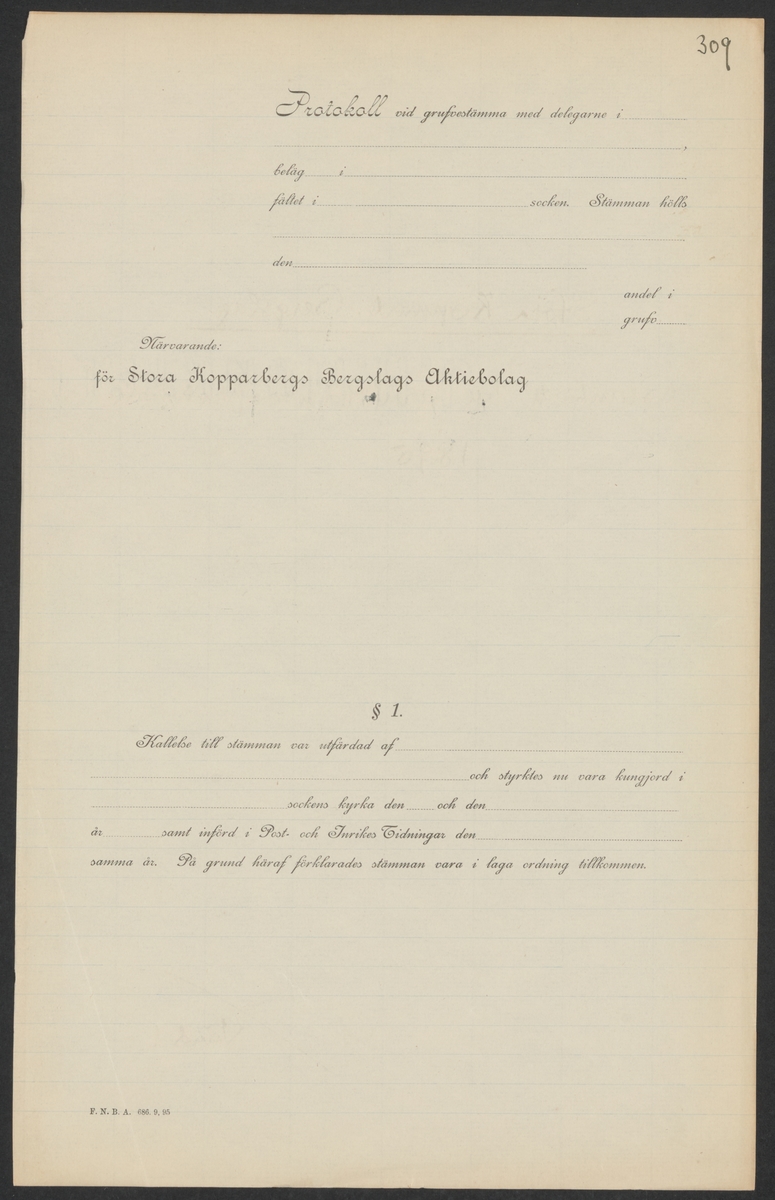 309
Protokoll vid grufvestämma med delegarne i
,
beläg i
fältet i socken. Stämman hölls
den
andel i
grufv
Närvarande:
för Stora Kopparbergs Bergslags Aktiebolag
§ 1.
Kallelse till stämman var utfärdad af
och styrktes nu vara kungjord i
sockens kyrka den och den
år samt införd i Post- och Inrikes Tidningar den
samma år. På grund häraf förklarades stämman vara i laga ordning tillkommen.
F. N. B. A. 686. 9. 95